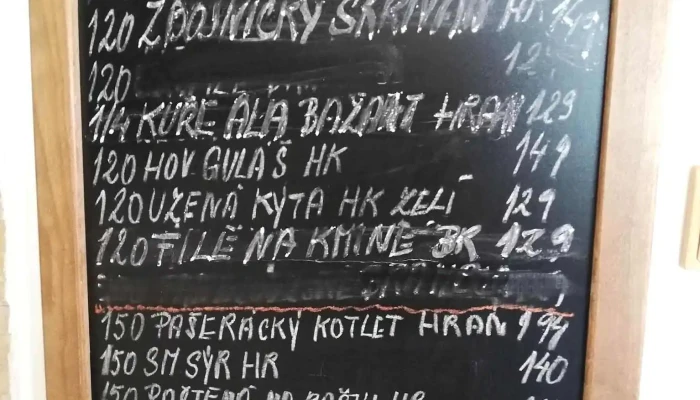 120 ZBOJNICKÝ SKŘIVAN HK 149
120
1/4 KUŘE ALA BAŽANT HRAN 129
120 HOV GULAŠ HK 149
120 UZENÁ KÝTA HK ZELÍ 129
120 FILÉ NA KMÍNĚ BK 129
150 PAŠERACKÝ KOTLET HRAN 194
150 SM SÝR HR 140
150